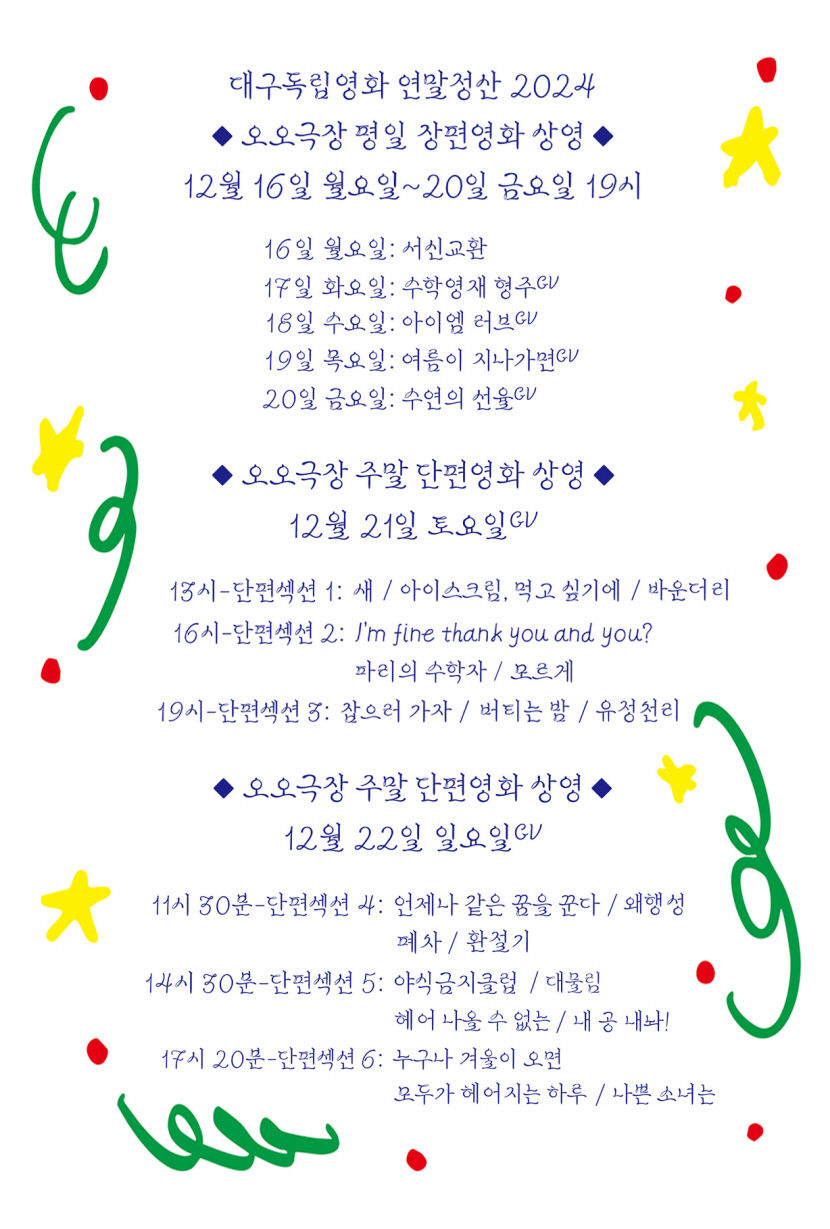 대구독립영화 연말정산 2024
◆ 오오극장 평일 장편영화 상영 ◆
12월 16일 월요일~20일 금요일 19시
16일 월요일: 서신교환
17일 화요일: 수학영재 형주GV
18일 수요일: 아이엠 러브GV
19일 목요일: 여름이 지나가면GV
20일 금요일: 수연의 선율GV
◆ 오오극장 주말 단편영화 상영 ◆
12월 21일 토요일GV
13시-단편섹션 1: 새 / 아이스크림, 먹고 싶기에 / 바운더리
16시-단편섹션 2: I'm fine thank you and you?
파리의 수학자 / 모르게
19시-단편섹션 3: 잡으러 가자 / 버티는 밤 / 유정천리
◆ 오오극장 주말 단편영화 상영 ◆
12월 22일 일요일GV
11시 30분-단편섹션 4: 언제나 같은 꿈을 꾼다 / 왜행성
폐차 / 환절기
14시 30분-단편섹션 5: 야식금지클럽 / 대물림
헤어 나올 수 없는 / 내 공 내놔!
17시 20분-단편섹션 6: 누구나 겨울이 오면
모두가 헤어지는 하루 / 나쁜 소녀는